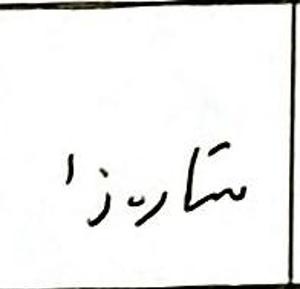 ستاره‌زا